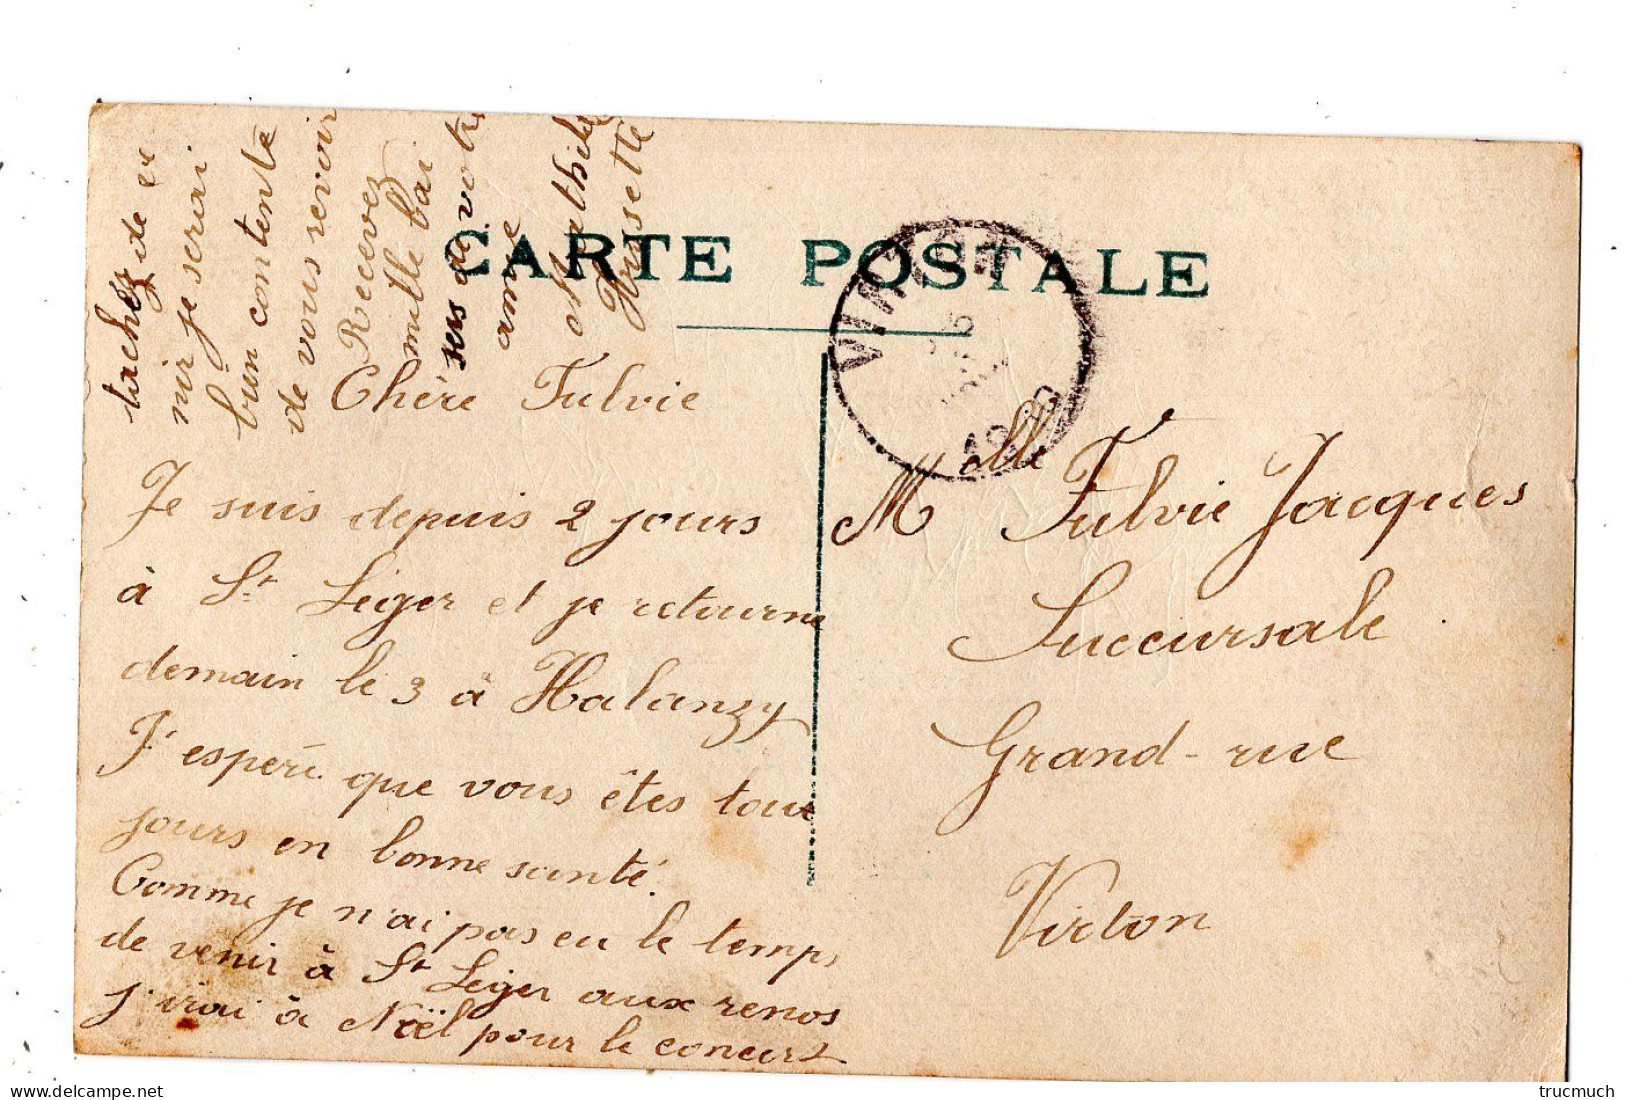 CARTE POSTALE
Chére Fulvie
Je suis depuis 2 jours
à St Léger et je retourne
demain le 3 à Halanzy
J'espére que vous êtes tou
jours en bonne santé.
Comme je n'ai pas eu le temps
de venir à St Léger aux renos
j'irai à Noël pour le concert
tachez de ve
nir je serai
bien contente
de vous revoir
Recevez
mille bai
sers de votre
amie
Mathilde
Housette
VIRTON
1910
Melle Fulvie Jacques
Succursale
Grand-rue
Virton
trucmuch